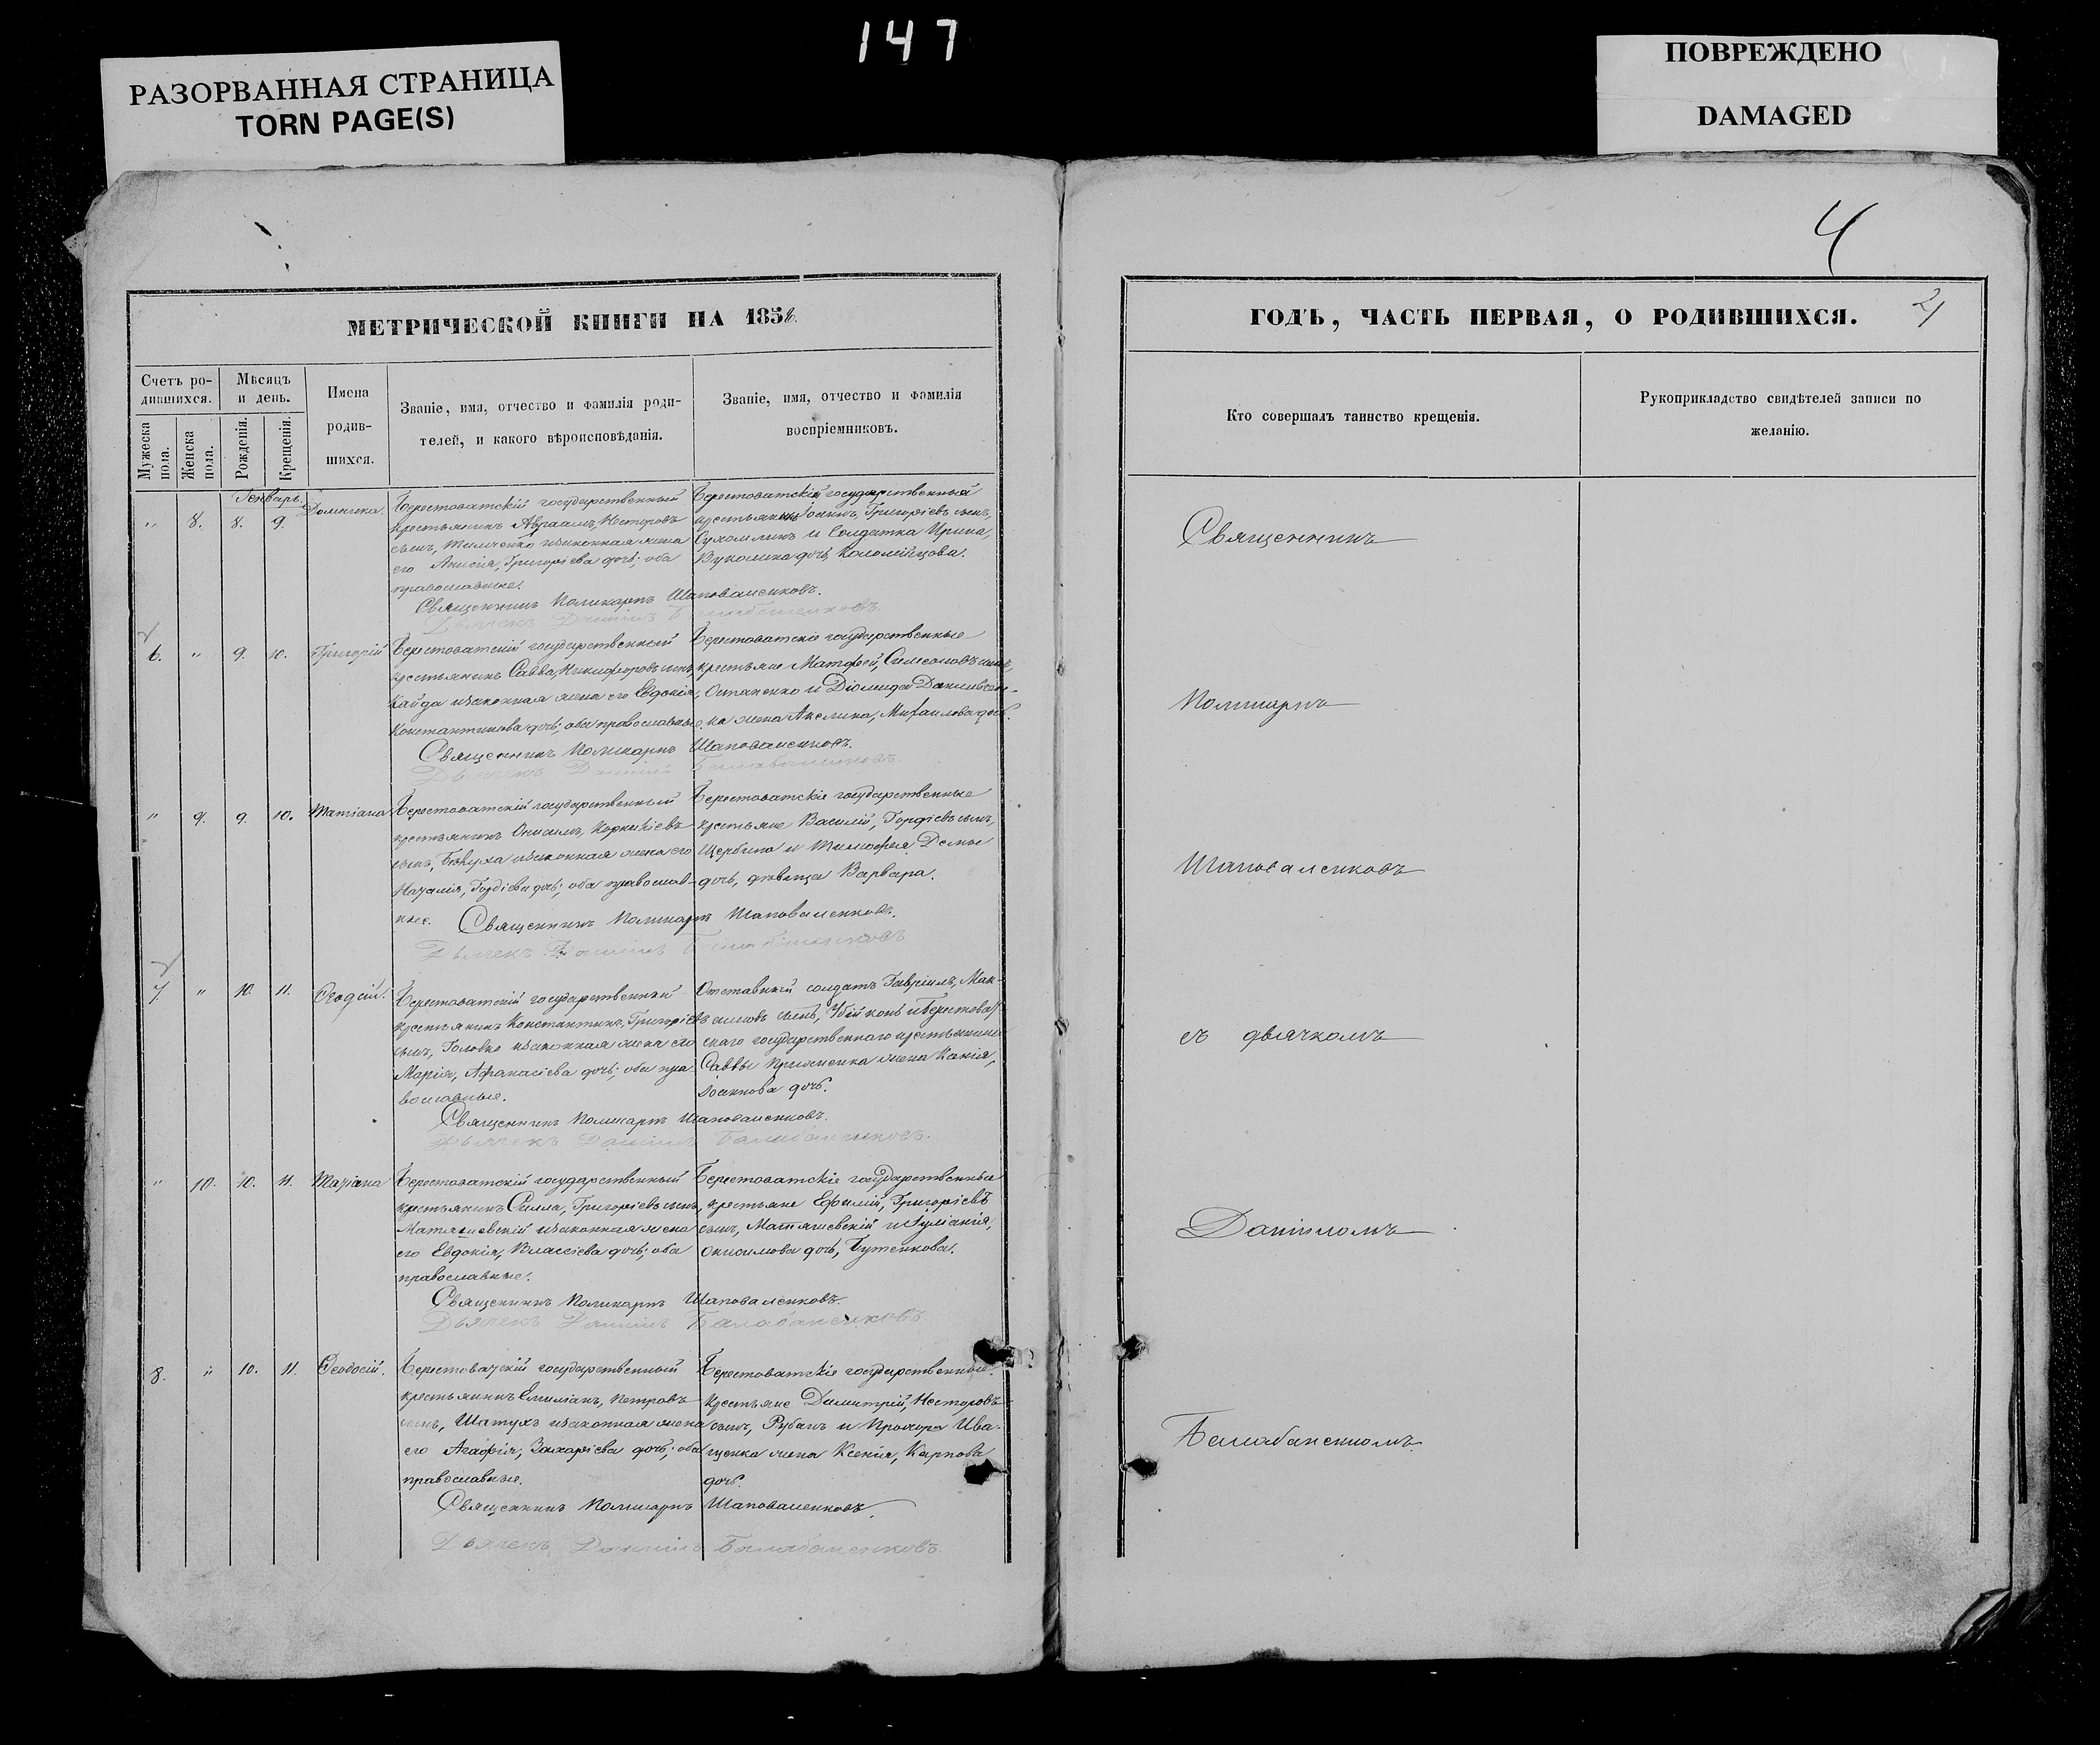 147
РАЗОРВАННАЯ СТРАНИЦА
TORN PAGE(S)
ПОВРЕЖДЕНО
DAMAGED
4
МЕТРИЧЕСКОЙ КНИГИ НА 1858
Счетъ ро-
дившихся.
Мѣсяцъ
и день.
Имена
родив-
шихся.
Званіе, имя, отчество и фамилія роди-
телей, и какого вѣроисповѣданія.
Званіе, имя, отчество и фамилія
воспріемниковъ.
Мужеска
пола.
Женска
пола.
Рожденія.
Крещенія.
Генварь.
„ 8. 8. 9. Домникія
Берестоватскій государственный
крестьянинъ Авраамъ, Несторовъ
сынъ, Тимченко и законная жена
его Анисія, Григоріева дочь; оба
православные.
Берестоватскій государственный
крестьянинъ Іоаннъ, Григоріевъ сынъ,
Сухомлинъ и Солдатка Ирина,
Вуколина дочь, Коломійцова.
Священникъ Поликарпъ Шаповаленковъ.
Дьячекъ Даніилъ Балабаненковъ
6. „ 9. 10. Григорій
Берестоватскій государственный
крестьянинъ Савва, Никифоровъ сынъ,
Кайда и законная жена его Евдокія,
Константинова дочь; оба православные.
Берестоватскіе государственные
крестьяне Матфей, Симеоновъ сынъ,
Остапенко и Діомида Данилсен-
ка жена Акилина, Михаилова дочь.
Священникъ Поликарпъ Шаповаленковъ.
Дьячекъ Даніилъ Балабаненковъ
„ 9. 9. 10. Татіана
Берестоватскій государственный
крестьянинъ Онисимъ, Корниліевъ
сынъ, и законная жена его
Наталія, Гордіева дочь; оба православ-
ные.
Берестоватскіе государственные
крестьяне Василій, Гордіевъ сынъ,
Щербина и Тимофея
дочь, дѣвица Варвара.
Священникъ Поликарпъ Шаповаленковъ.
Дьячекъ Даніилъ Балабаненковъ
7. „ 10. 11. Ѳеодсій.
Берестоватскій государственный
крестьянинъ Константинъ, Григоріевъ
сынъ, Головко и законная жена его
Марія, Афанасіева дочь; оба пра-
вославные.
Отставный солдатъ Гавріилъ, Мак-
симовъ сынъ, Убійконь и Берестоват-
скаго государственнаго крестьянина
Саввы жена Ксенія,
Іоаннова дочь.
Священникъ Поликарпъ Шаповаленковъ.
Дьячекъ Даніилъ Балабаненковъ.
„ 10. 10. 11. Татіана
Берестоватскій государственный
крестьянинъ Силла, Григоріевъ сынъ,
Матяшевскій и законная жена
его Евдокія, Власіева дочь; оба
православные.
Берестоватскіе государственные
крестьяне Ефимій, Григоріевъ
сынъ, Матяшевскій и Іуліанія,
Онисимова дочь, Бутенкова.
Священникъ Поликарпъ Шаповаленковъ.
Дьячекъ Даніилъ Балабаненковъ
8. „ 10. 11. Ѳеодосій.
Берестоватскій государственный
крестьянинъ Емиліанъ, Петровъ
сынъ, Шатухъ и законная жена
его Агафія, Захаріева дочь; оба
православные.
Берестоватскіе государственные
крестьяне Димитрій, Несторовъ
сынъ, Рубанъ и Прохора Ива-
щенка жена Ксенія, Карпова
дочь.
Священникъ Поликарпъ Шаповаленковъ.
Дьячекъ Даніилъ Балабаненковъ
ГОДЪ, ЧАСТЬ ПЕРВАЯ, О РОДИВШИХСЯ.
Кто совершалъ таинство крещенія.
Рукоприкладство свидѣтелей записи по
желанію.
Священникъ
Поликарпъ
Шаповаленковъ
съ дьячкомъ
Даніиломъ
Балабаненкомъ.